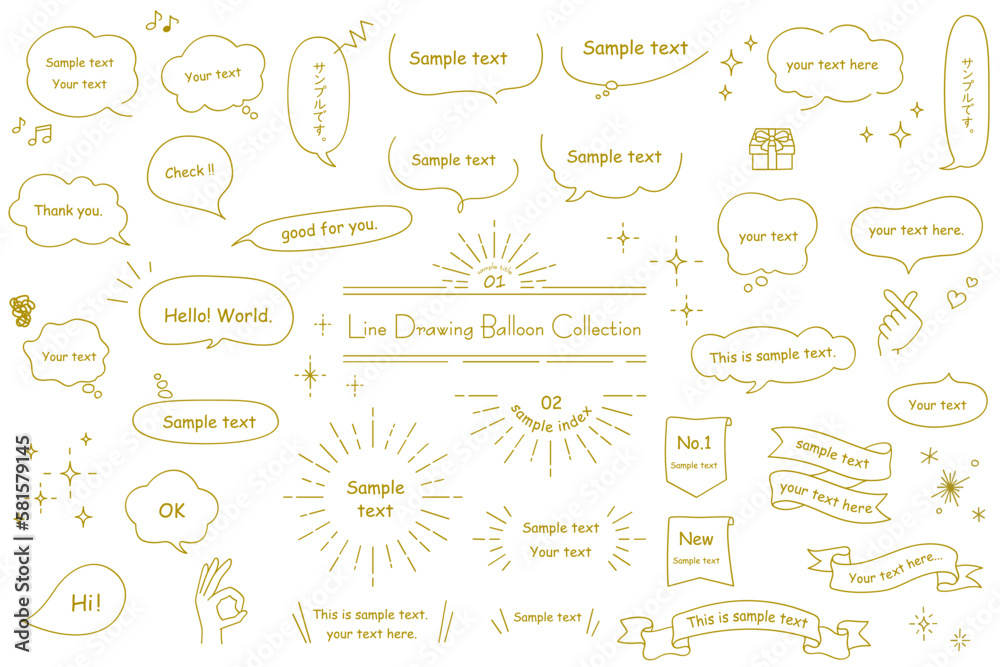 Sample text
Your text
Your text
サンプルです。
Sample text
Sample text
your text here
サンプルです。
Check !!
Sample text
Sample text
Thank you.
good for you.
your text
your text here.
sample title
01
Hello! World.
Line Drawing Balloon Collection
Your text
This is sample text.
Sample text
02
sample index
Your text
No.1
Sample text
sample text
your text here
Sample
text
OK
Sample text
Your text
New
Sample text
Your text here...
Hi!
This is sample text.
your text here.
Sample text
This is sample text
Adobe Stock | #581579145